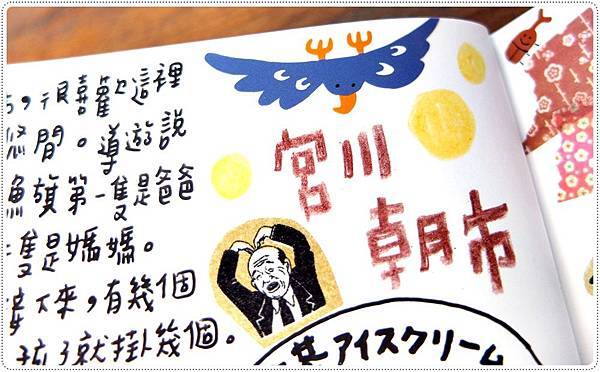 ，很喜歡這裡
悠閒。導遊說
魚旗第一隻是爸爸
隻是媽媽。
接下來，有幾個
孩子就掛幾個。
宮川
朝市
茶アイスクリーム